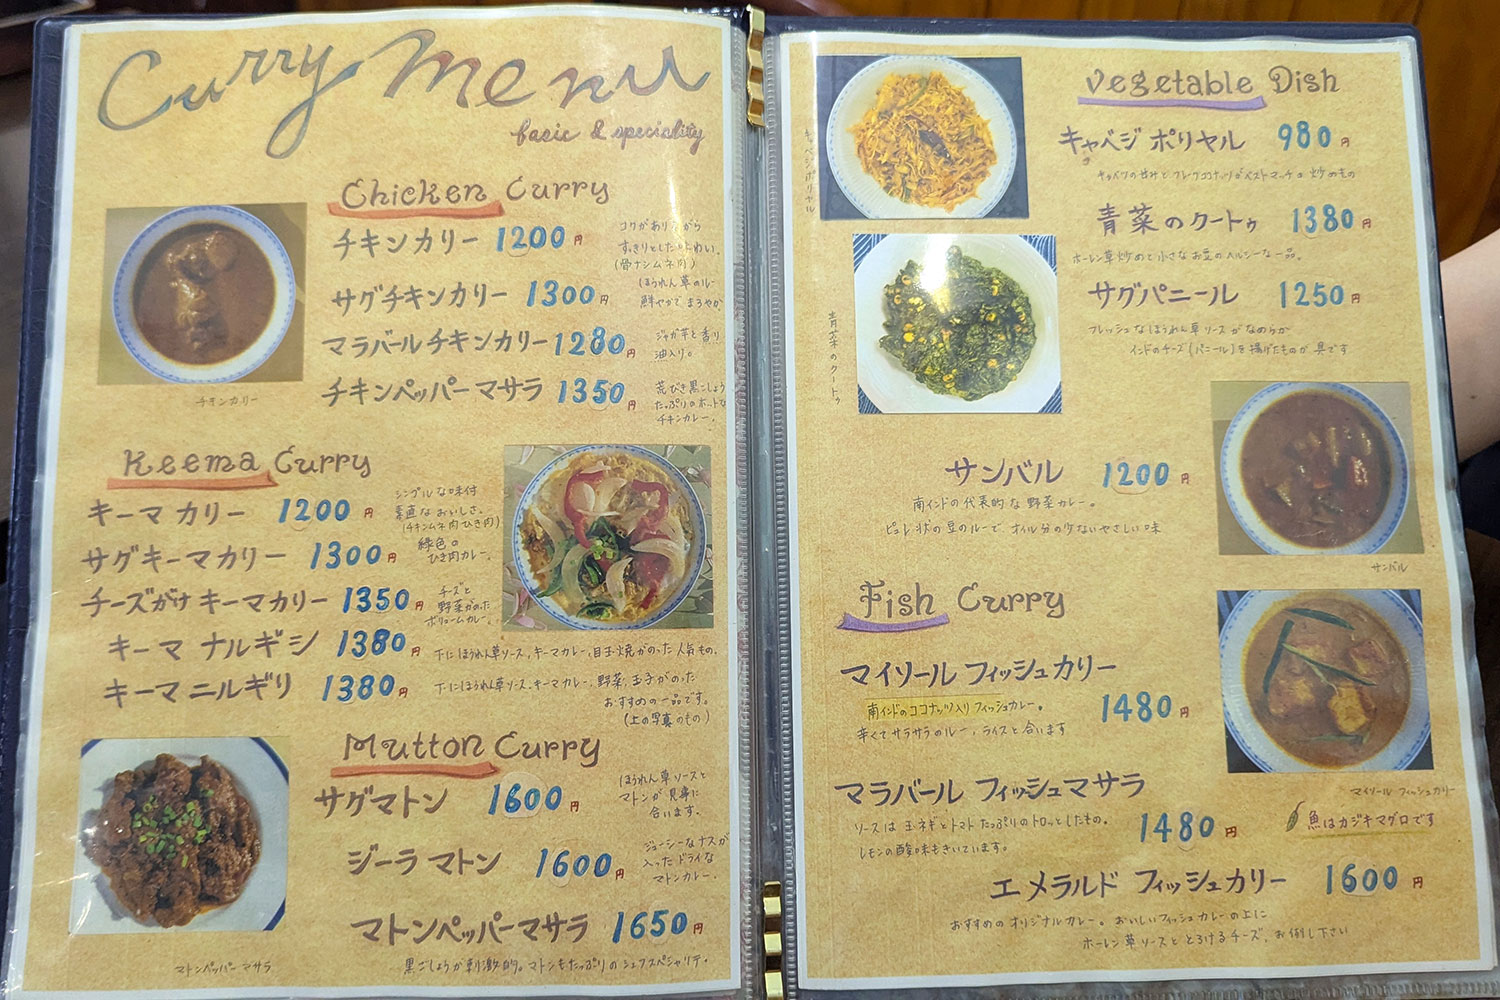 Curry Menu
basic & speciality
Chicken Curry
チキンカリー 1200円
コクがありながら
すっきりとした味わい。
(骨ナシムネ肉)
サグチキンカリー 1300円
ほうれん草のルー
鮮やかで まろやか
マラバールチキンカリー 1280円
ジャガ芋と香り
油入り。
チキンペッパーマサラ 1350円
荒びき黒こしょう
たっぷりのホットな
チキンカレー。
チキンカリー
Keema Curry
キーマ カリー 1200円
シンプルな味付
素直なおいしさ。
(チキンムネ肉ひき肉)
サグキーマカリー 1300円
緑色の
ひき肉カレー。
チーズがけ キーマカリー 1350円
チーズと
野菜がのった
ボリュームカレー。
キーマ ナルギシ 1380円
下にほうれん草ソース、キーマカレー、目玉焼がのった人気もの。
キーマニルギリ 1380円
下にほうれん草ソース、キーマカレー、野菜、玉子がのった
おすすめの一品です。
(上の写真のもの)
Mutton Curry
サグマトン 1600円
ほうれん草ソースと
マトンが見事に
合います。
ジーラ マトン 1600円
ジューシーなナスが
入ったドライな
マトンカレー。
マトンペッパーマサラ 1650円
黒ごしょうが刺激的。マトンもたっぷりのシェフスペシャリテ。
マトンペッパーマサラ
Vegetable Dish
キャベジ ポリヤル 980円
キャベツの甘みとフレークココナッツがベストマッチの炒めもの
キャベジポリヤル
青菜のクートゥ 1380円
ホーレン草炒めと小さなお豆のヘルシーな一品。
青菜のクートゥ
サグパニール 1250円
フレッシュなほうれん草ソースがなめらか
インドのチーズ(パニール)を揚げたものが具です
サンバル 1200円
南インドの代表的な野菜カレー。
ピュレ状の豆のルーで、オイル分の少ないやさしい味
サンバル
Fish Curry
マイソール フィッシュカリー 1480円
南インドのココナッツ入りフィッシュカレー。
辛くてサラサラのルー、ライスと合います
マイソール フィッシュカリー
マラバール フィッシュマサラ 1480円
ソースは玉ネギとトマトたっぷりのトロッとしたもの。
レモンの酸味もきいています。
魚はカジキマグロです
エメラルド フィッシュカリー 1600円
おすすめのオリジナルカレー。おいしいフィッシュカレーの上に
ホーレン草ソースととろけるチーズ。お試し下さい